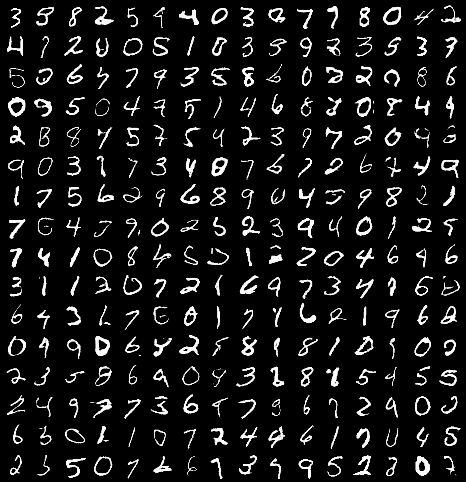 3 9 8 2 5 9 4 0 3 2 7 7 8 0 4 2
4 7 2 0 0 5 1 8 3 5 9 2 3 5 3 7
5 2 6 4 7 9 3 5 8 6 0 2 2 0 8 6
0 9 5 0 4 7 5 1 4 6 8 2 0 8 4 9
2 8 8 4 5 7 5 9 2 3 9 7 2 0 9 6
9 0 3 1 7 3 4 8 7 6 7 2 6 7 4 9
1 7 5 6 2 9 6 8 9 0 4 5 9 8 2 1
7 6 4 5 9 0 2 5 2 3 9 4 0 1 2 5
7 4 1 0 8 4 5 5 1 2 2 0 4 6 9 6
3 1 1 2 0 7 2 1 6 9 7 3 4 1 6 0
6 4 3 6 7 6 0 1 7 1 6 2 1 9 6 8
0 9 9 0 6 8 2 5 8 1 8 1 8 9 0 0
2 3 5 8 6 9 0 9 3 1 8 1 5 4 5 5
2 4 9 7 7 3 6 9 7 9 6 7 2 9 0 2
6 3 0 1 1 0 7 2 4 4 6 1 7 0 4 5
2 3 5 0 7 6 6 1 3 9 9 5 2 8 0 7